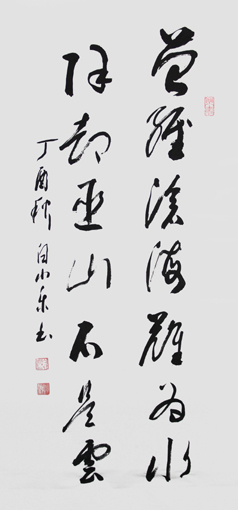 曾經滄海難為水
除却巫山不是雲
丁酉秋 白小东书